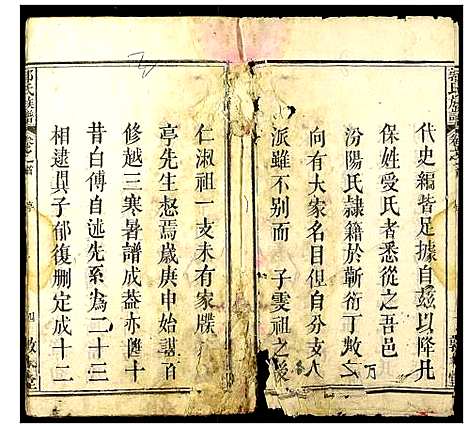 代史編皆足據自茲以降凡
保姓受氏者悉從之吾邑
汾陽氏隸籍於蘄衍丁數之万
向有大家名目但自分支
派雖不別而　子雯祖之
仁淑祖一支未有家牒
亭先生惄焉歲庚申始謀
修越三寒暑譜成蓋亦
昔白傅自述先系為二十三
相逮其子郁復刪定成十二
郭氏族譜　卷之首
四